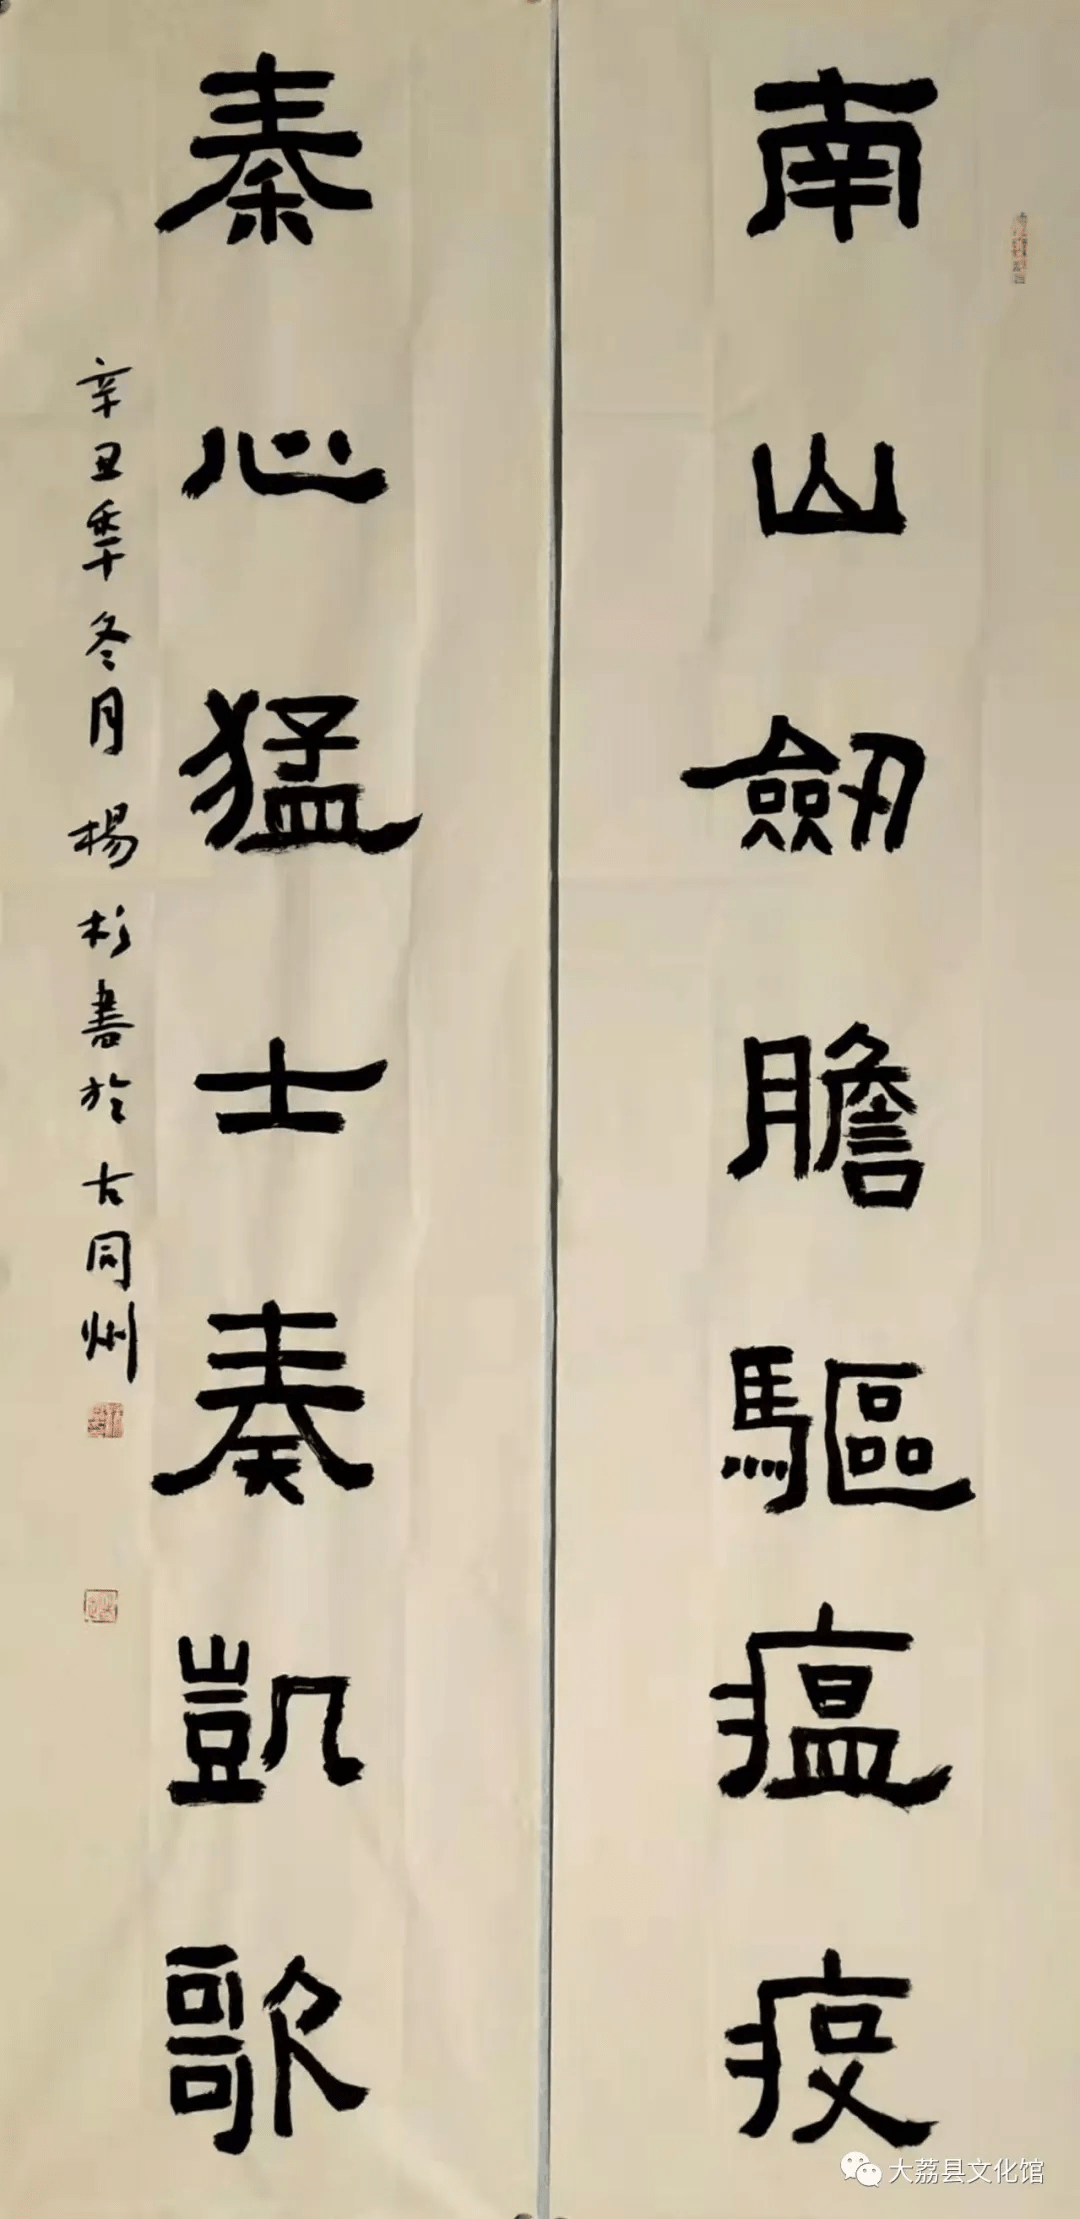 南山劒膽驅瘟疫
秦心猛士奏凱歌
辛丑季冬月楊杉書於古同州
大荔县文化馆